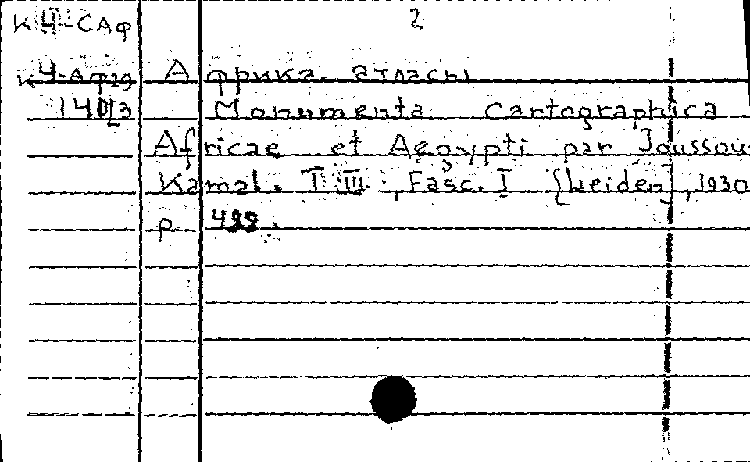 К Ч-САф 2
К Ч-Аф29 Африка. атласы
14 Monumenta Cartographica
Africae et Aegypti par Joussou
Kamal. T III, Fasc. I [Leiden], 1930
p 488.